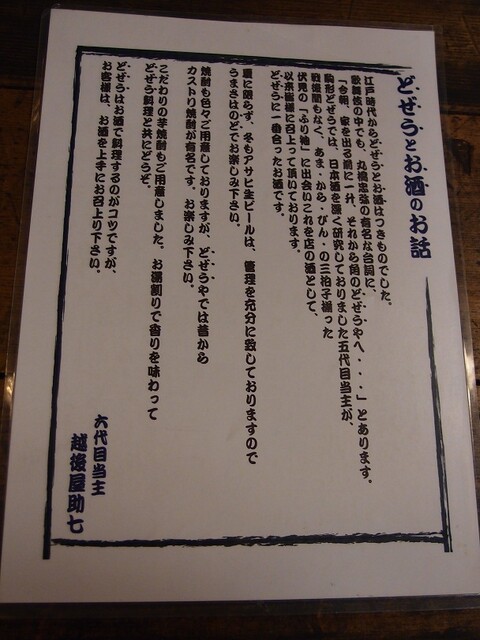 どぜうとお酒のお話
江戸時代からどぜうとお酒はつきものでした。
歌舞伎の中でも、丸橋忠弥の有名な台詞に、
「今朝、家を出る前に一升、それから角のどぜうやへ・・・」とあります。
駒形どぜうでは、日本酒を深く研究しておりました五代目当主が、
戦後間もなく、あま・から・ぴん・の三拍子揃った
伏見の「ふり袖」に出会いこれを店の酒として、
以来皆様に召上って頂いております。
どぜうに一番合ったお酒です。
夏に限らず、冬もアサヒ生ビールは、管理を充分に致しておりますので
うまさはのどでお楽しみ下さい。
焼酎も色々ご用意しておりますが、どぜうやでは昔から
カストリ焼酎が有名です。お楽しみ下さい。
こだわりの芋焼酎もご用意しました。お湯割りで香りを味わって
どぜう料理と共にどうぞ。
どぜうはお酒で料理するのがコツですが、
お客様は、お酒を上手にお召上り下さい。
六代目当主
越後屋助七